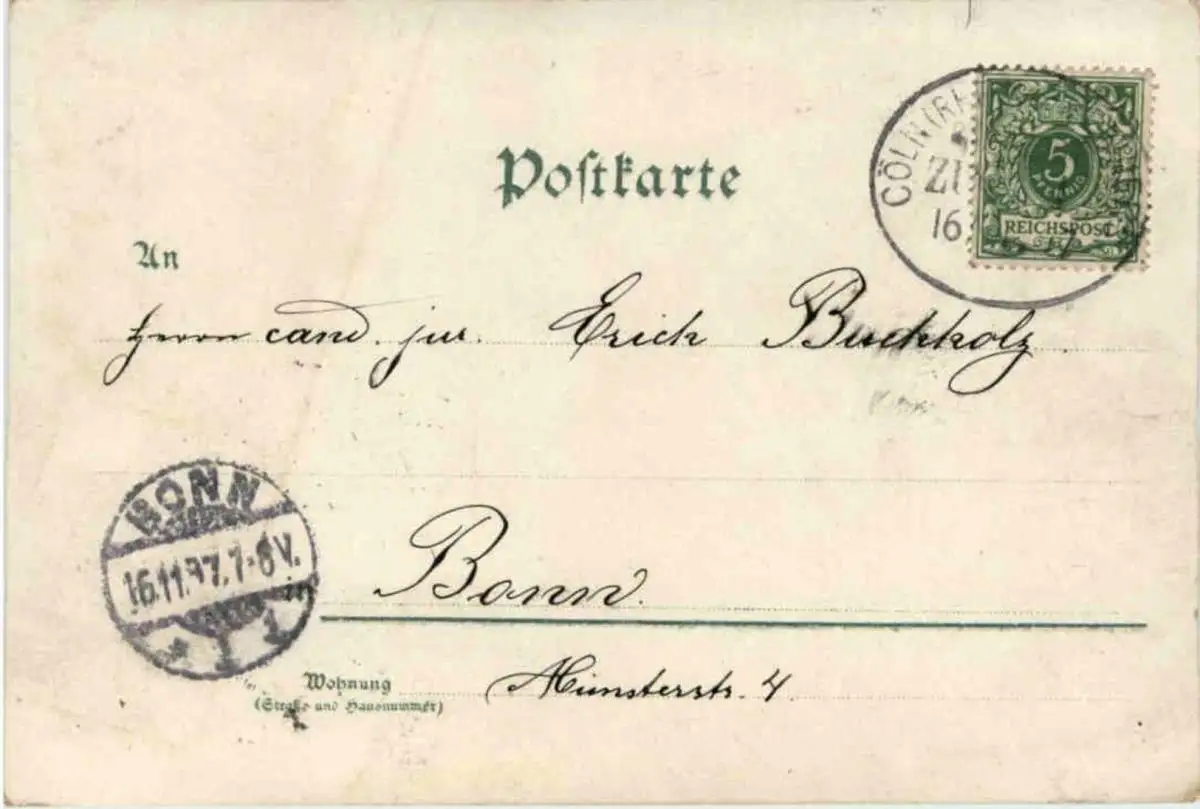 CÖLN (RH
16
5
PFENNIG
REICHSPOST
Postkarte
An
Herrn cand. jur. Erich Buchholz
BONN
16.11.97. 7-8 V.
1
Bonn.
Wohnung
(Straße und Hausnummer)
Münsterstr. 4